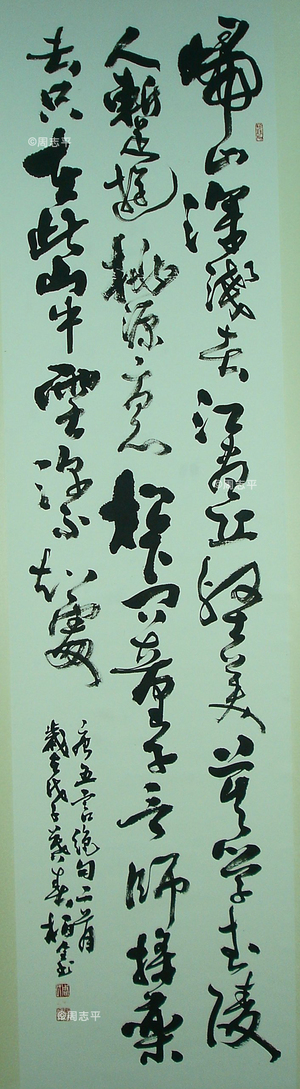 歸山深淺去須盡丘壑美莫學武陵
人暫遊桃源裏松下問童子言師採藥
去只在此山中雲深不知處
唐五言絕句二首
歲在戊子暮春
©周志平
©周志平
©周志平